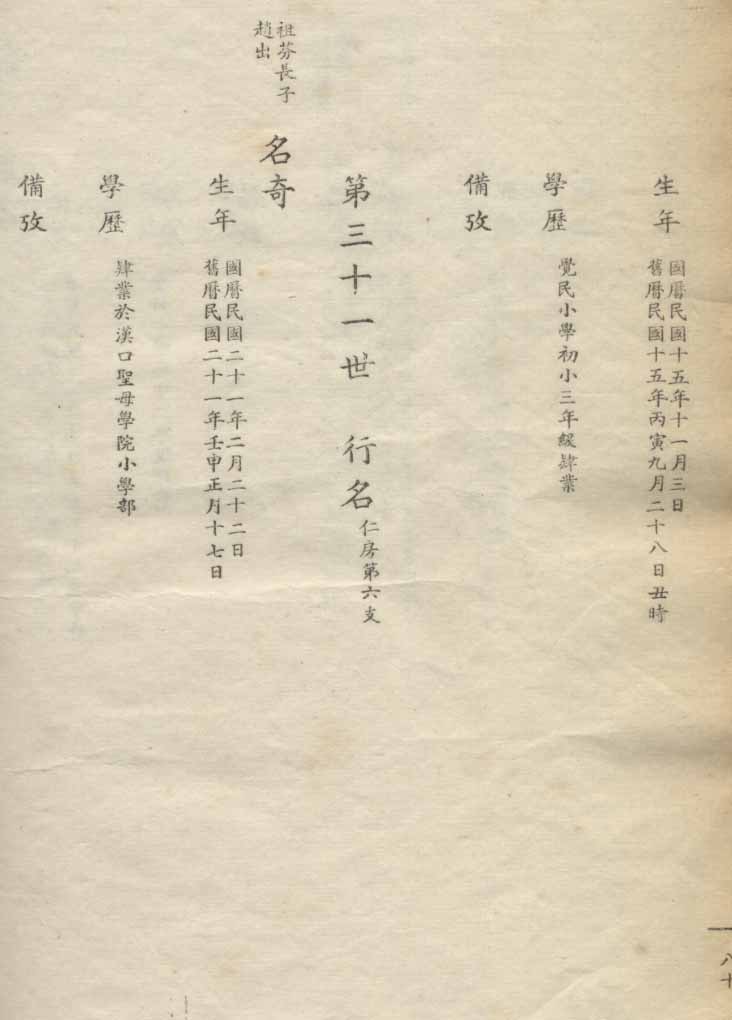 生年
國曆民國十五年十一月三日
舊曆民國十五年丙寅九月二十八日丑時
學歷
覺民小學初小三年級肄業
備攷
第三十一世 行名
仁房第六支
祖芬長子
趙出
名奇
生年
國曆民國二十一年二月二十二日
舊曆民國二十一年壬申正月十七日
學歷
肄業於漢口聖母學院小學部
備攷
八十